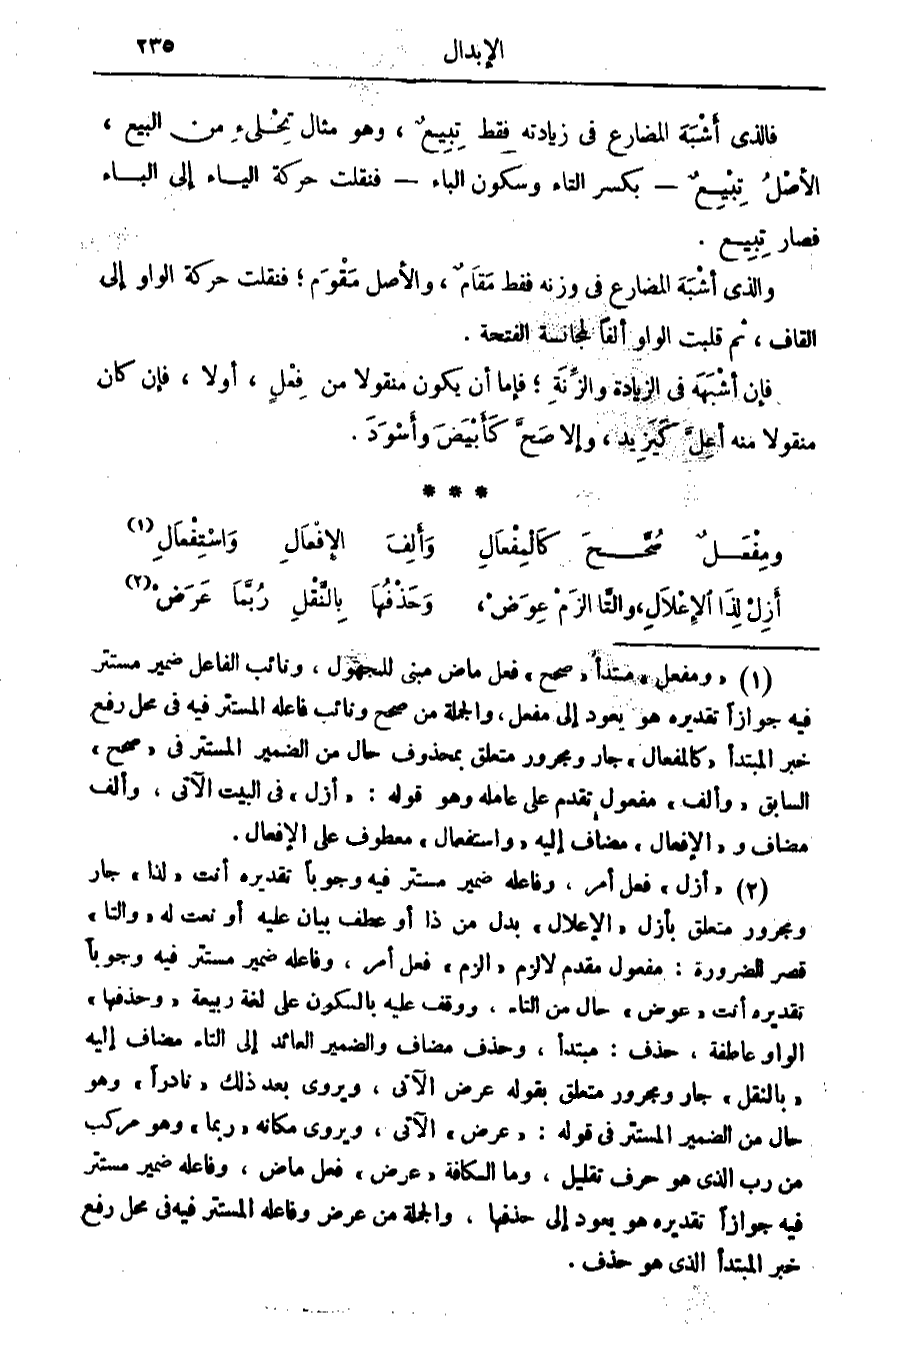 الإبدال ٢٣٥
فالذى أَشْبَهَ المضارع فى زيادته فقط تِبِيعٌ ، وهو مثال تِحْلِىءٍ من البيع ،
الأَصْلُ تِبْيِعٌ — بكسر التاء وسكون الباء — فنقلت حركة الياء إلى الباء
فصار تِبِيع .
والذى أَشْبَهَ المضارع فى وزنه فقط مَقَامٌ ، والأصل مَقْوَم ؛ فنقلت حركة الواو إلى
القاف ، ثم قلبت الواو ألفاً لمجانسة الفتحة .
فإن أَشْبَهَه فى الزيادة والزِّنَةِ ؛ فإما أن يكون منقولا من فِعْلٍ ، أولا ، فإن كان
منقولا منه أعِلَّ كَيَزِيد ، وإلا صَحَّ كَأَبْيَضَ وأَسْوَدَ .
* * *
ومِفْعَلٌ صُحِّحَ كَالْمِفْعَالِ وَأَلِفَ الإِفْعَالِ وَاسْتِفْعَالِ (١)
أَزِلْ لِذَا الإِعْلَالِ، والتَّا الزَمْ عِوَضْ، وَحَذْفُهَا بِالنَّقْلِ رُبَّمَا عَرَضْ (٢)
(١) « ومفعل » مبتدأ « صحح » فعل ماض مبنى للمجهول ، ونائب الفاعل ضمير مستتر
فيه جوازاً تقديره هو يعود إلى مفعل ، والجملة من صحح ونائب فاعله المستتر فيه فى محل رفع
خبر المبتدأ « كالمفعال » جار ومجرور متعلق بمحذوف حال من الضمير المستتر فى « صحح »
السابق « وألف » مفعول تقدم على عامله وهو قوله : « أزل » فى البيت الآتى ، وألف
مضاف و « الإفعال » مضاف إليه « واستفعال » معطوف على الإفعال .
(٢) « أزل » فعل أمر ، وفاعله ضمير مستتر فيه وجوباً تقديره أنت « لذا » جار
ومجرور متعلق بأزل « الإعلال » بدل من ذا أو عطف بيان عليه أو نعت له « والتا »
قصر للضرورة : مفعول مقدم لالزم « الزم » فعل أمر ، وفاعله ضمير مستتر فيه وجوباً
تقديره أنت « عوض » حال من التاء ، ووقف عليه بالسكون على لغة ربيعة « وحذفها »
الواو عاطفة ، حذف : مبتدأ ، وحذف مضاف والضمير العائد إلى التاء مضاف إليه
« بالنقل » جار ومجرور متعلق بقوله عرض الآتى ، ويروى بعد ذلك « نادراً » وهو
حال من الضمير المستتر فى قوله : « عرض » الآتى ، ويروى مكانه « ربما » وهو مركب
من رب الذى هو حرف تقليل ، وما الكافة « عرض » فعل ماض ، وفاعله ضمير مستتر
فيه جوازاً تقديره هو يعود إلى حذفها ، والجملة من عرض وفاعله المستتر فيه فى محل رفع
خبر المبتدأ الذى هو حذف .